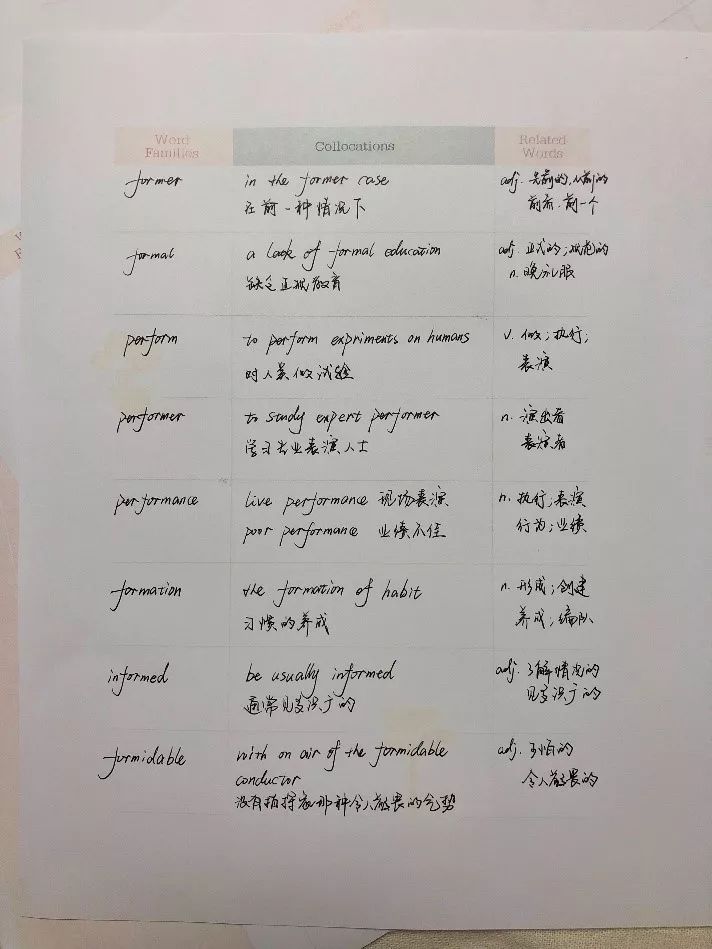 Word Families
Collocations
Related Words
former
in the former case
在前一种情况下
adj. 先前的,从前的
前者,前一个
formal
a lack of formal education
缺乏正规教育
adj 正式的;规范的
n. 晚礼服
perform
to perform expriments on humans
对人类做试验
v. 做;执行;
表演
performer
to study expert performer
学习专业表演人士
n. 演出者
表演者
performance
live performance 现场表演
poor performance 业绩不佳
n. 执行;表演
行为;业绩
formation
the formation of habit
习惯的养成
n. 形成;创建
养成;编队
informed
be usually informed
通常见多识广的
adj. 了解情况的
见多识广的
formidable
with on air of the formidable
conductor
没有指挥家那种令人敬畏的气势
adj. 可怕的
令人敬畏的